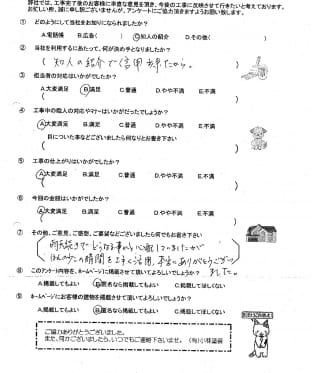 弊社では、工事完了後のお客様に率直な意見を頂き、今後の工事に反映させて行きたいと考えております。
お忙しい所、誠に申し訳ございませんが、アンケートにご協力頂きますようお願い致します。
① どのようにして当社をお知りになられましたか？
A.電話帳 B.広告( ) C知人の紹介 D.その他( )
② 当社を利用するにあたって、何が決め手となりましたか？
(知人の紹介で信用出来たから。)
③ 担当者の対応はいかがでしたか？
A.大変満足 B満足 C.普通 D.やや不満 E.不満
④ 工事中の職人の対応やマナーはいかがだったでしょうか？
A大変満足 B.満足 C.普通 D.やや不満 E.不満
目についた事などございましたら何なりとお書き下さい
( )
⑤ 工事の仕上がりはいかがでしたか？
A大変満足 B.満足 C.普通 D.やや不満 E.不満
⑥ 今回の金額はいかがでしたか？
A大変満足 B.満足 C.普通 D.やや不満 E.不満
⑦ その他、ご意見、ご感想、ご要望などございましたら何でもお書き下さい
雨続きでどうなる事やら心配していましたが
の時間を上手く活用、本当にありがとうござい
ました。
⑧ このアンケート内容を、ホームページに掲載させて頂いてよろしいでしょうか？
A.掲載してもよい B匿名なら掲載してもよい C.掲載してほしくない
⑨ ホームページにお客様の建物を掲載させて頂いてよろしいでしょうか？
A.掲載してもよい B匿名なら掲載してもよい C.掲載してほしくない
ご協力ありがとうございました。
また、何かございましたら、いつでもご連絡下さいませ。 (有)小林塗装